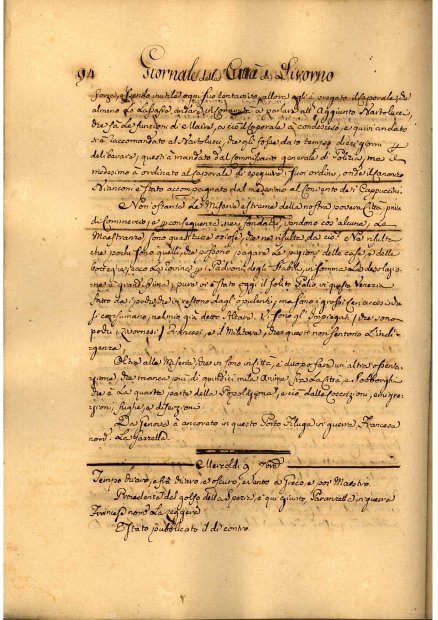 94 Giornale della Città di Livorno
forze, e essendo inutile ogni suo tentativo, allora egli à pregato il Caporale, che
almeno lo lasciasse andare in a parlare all' Aggiunto Bartolucci,
che fà le funzioni di Maire, a ciò il Caporale à condesceso, e quivi andato
s'à raccomandato al Bartolucci, che gli fosse dato tempo dieci giorni a
deliberare, questi à mandato dal Commissario generale di Polizia, ma il
medesimo à ordinato al Caporale di eseguire i suoi ordini, onde il
Bianconi è stato accompagnato dal medesimo al Convento de i Cappuccini.
Non ostante la Miseria estrema della nostra povera Città priva
di Commercio, e per conseguenza nei fondachi, vendono cos' alcuna, Le
Maestranze sono quasi tutte oziose, che ne risulta da ciò? Ne risulta
che pochi sono quelli, che possono pagare le pigioni delle case, e delle
botteghe, ecco la rovina p. i Padroni degli Stabili, in somma La desolazio-
ne è grandissima, pure vi è stato oggi il solito Palio in questa Venezia
fatto da
si consumano, nel mio già detto Altare. Vi sono gl' Impiegati (che sono
pochi Livornesi) i Francesi, e il Militare, che questi non sentono l'indi-
genza.
Oltre alla Miseria, che vi sono in Città, è duopo fare un'altra osserva-
zione, che manca più di quindici mila Anime frà la Città, e i sobborghi
che è la quarta parte della Popolazione, e ciò dalle Coscrizioni, emigra-
zioni, fughe, e diserzioni.
Da Genova à ancorato in questo Porto Filuga in guerra Francese
nom. La Gazzella.
Mercoldì 9
Tempo chiaro, e frà chiaro e oscuro, e vento a Greco, e poi Maestro.
Procedente dal golfo della Spezie, è qui giunto, Paranzella in guerra
Francese nom. La Leggera
È stato pubblicato il di contro